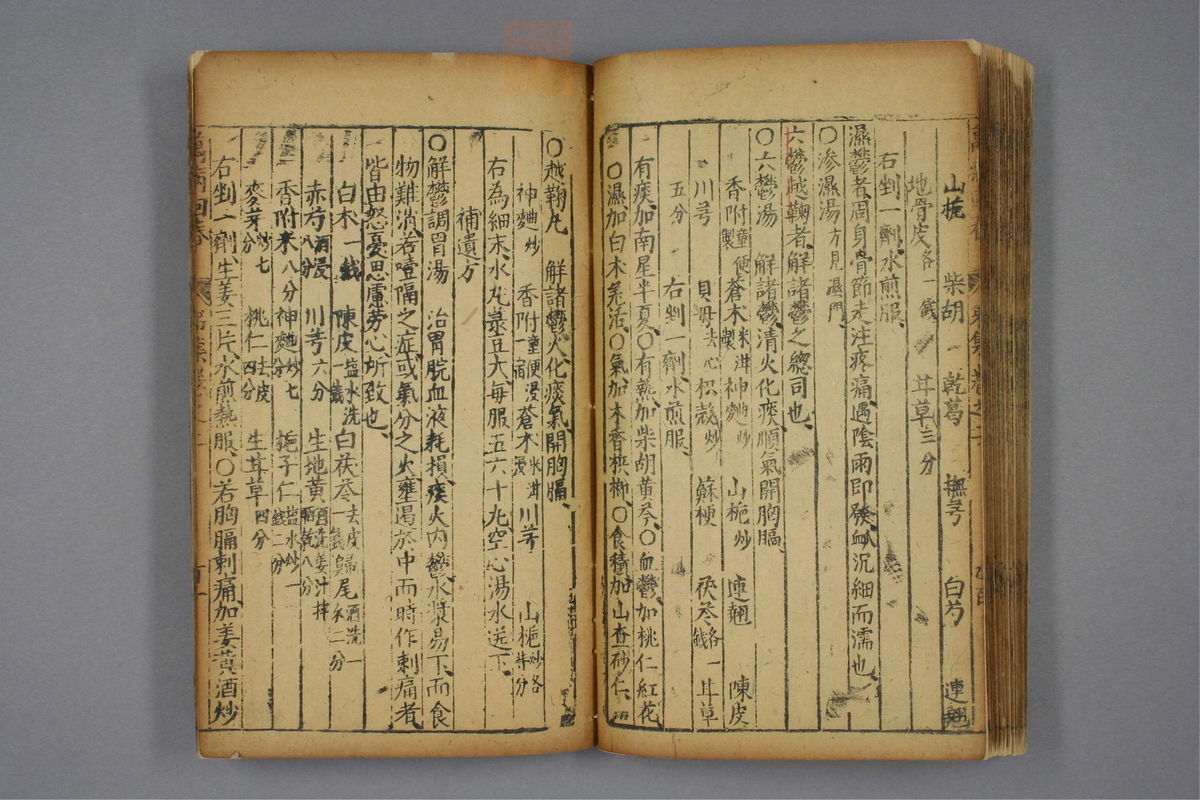 山梔 柴胡 乾葛 撫芎 白芍 連翹
地骨皮各一錢 甘草三分
右剉一劑水煎服
濕鬱者周身骨節走注疼痛遇陰雨即發脉沉細而濡也
〇滲濕湯方見濕門
六鬱越鞠者解諸鬱之總司也
〇六鬱湯 解諸鬱清火化痰順氣開胸膈
香附童便製 蒼术米泔製 神麯炒 山梔炒 連翹 陳皮
川芎 貝母去心 枳殼炒 蘇梗 茯苓各一錢 甘草
五分 右剉一劑水煎服
有痰加南星半夏〇有熱加柴胡黃芩〇血鬱加桃仁紅花
〇濕加白术羌活〇氣加木香梹榔〇食積加山查砂仁
〇越鞠丸 解諸鬱火化痰氣開胸膈
神麯炒 香附童便浸一宿 蒼术米泔浸 川芎 山梔炒各等分
右為細末水丸菉豆大每服五六十丸空心湯水送下
補遺方
〇解鬱調胃湯 治胃脘血液耗損痰火內鬱水漿易下而食
物難消若噎隔之症或氣分之火壅遏於中而時作刺痛者
皆由怒憂思慮勞心所致也
白术一錢 陳皮塩水洗一錢 白茯苓去皮一錢 歸尾酒洗一錢二分
赤芍酒浸八分 川芎六分 生地黃酒洗姜汁拌晒乾八分
香附米八分 神麯炒七分 梔子仁塩水炒一錢二分
麥芽炒七分 桃仁去皮四分 生甘草四分
右剉一劑生姜三片水煎熱服〇若胸膈刺痛加姜黃酒炒